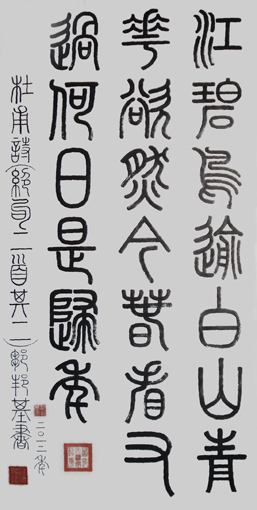 江碧鳥逾白山青
花欲然今春看又
過何日是歸年
杜甫詩(絕句二首其二)鄭邦基書
二〇一三年